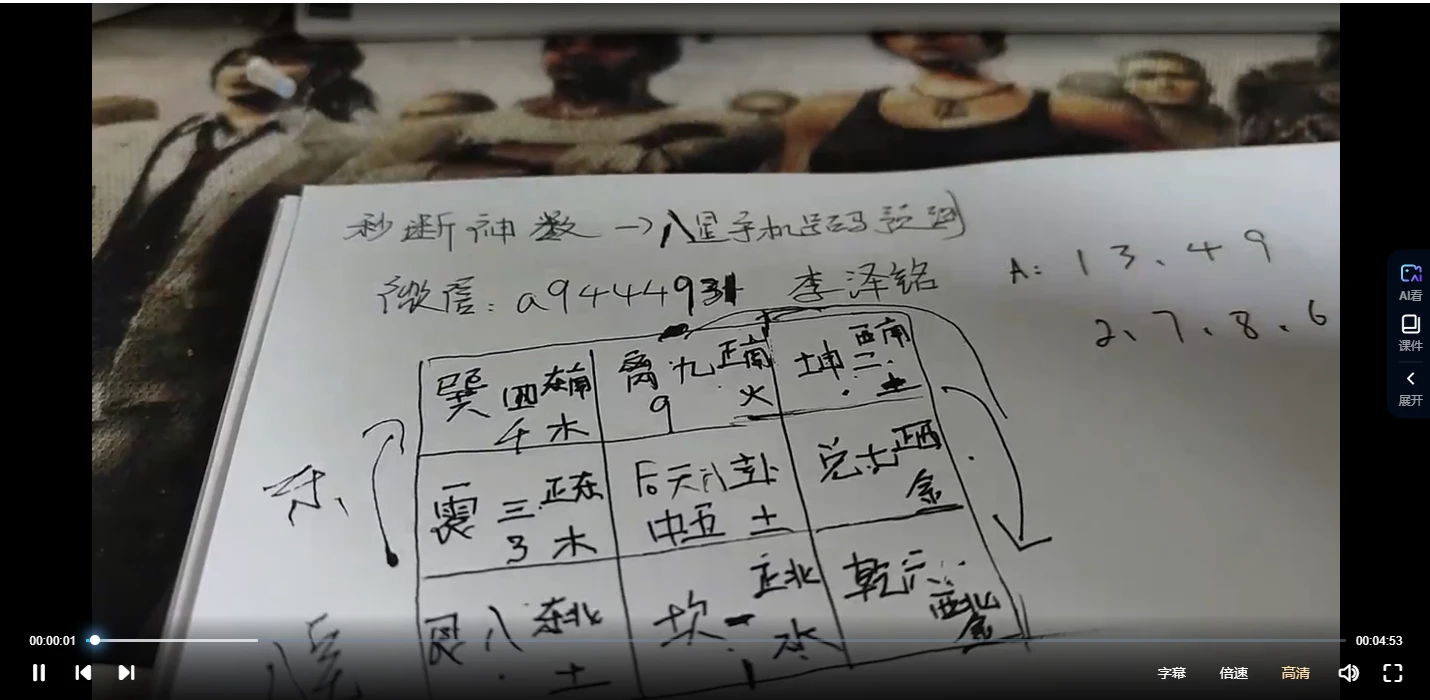 秒断神数→八星手机号码预测
微信：a9444931 李泽铭
A: 13、49
2、7、8、6
巽 四 东南
4 木
离 九 正南
9 火
坤 二 西南
土
震 三 正东
3 木
后天八卦
中五 土
兑七 正西
金
艮 八 东北
土
坎 一 正北
1 水
乾 六
西北
金
东、
AI看
课件
展开
00:00:01
00:04:53
字幕 倍速 高清